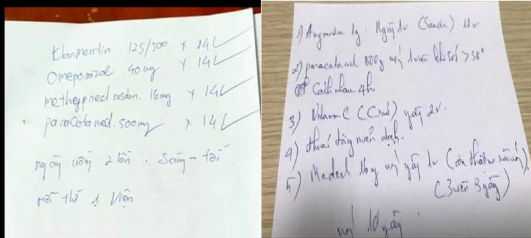 Klamentin. 125/500 x 14
Omeprazol 40mg x 14
methylpred nisolon. 16mg x 14
paracetamol. 500mg x 14
ngày uống 2 lần. Sáng - tối
mỗi thứ 1 viên
1) Augmentin 1g. Ngày 2v (Sandoz)
2) paracetamol uống 1 viên khi sốt > 38°
Cách nhau 4h
3) Vitamin C ngày 2v.
4) thuốc tăng miễn dịch.
5) Medrol 16mg uống ngày 1v
(3 viên 3 ngày)
uống 10 ngày.